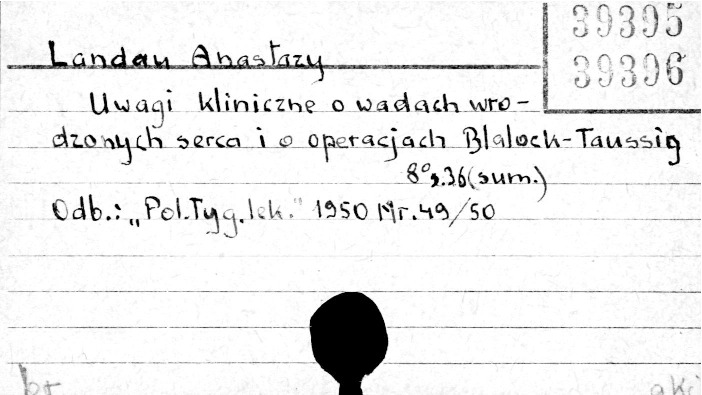 39395
39396
Landau Anastazy
Uwagi kliniczne o wadach wro-
dzonych serca i o operacjach Blalock-Taussig
8° s.36 (sum.)
Odb.: „Pol.Tyg.lek." 1950 Nr.49/50
br